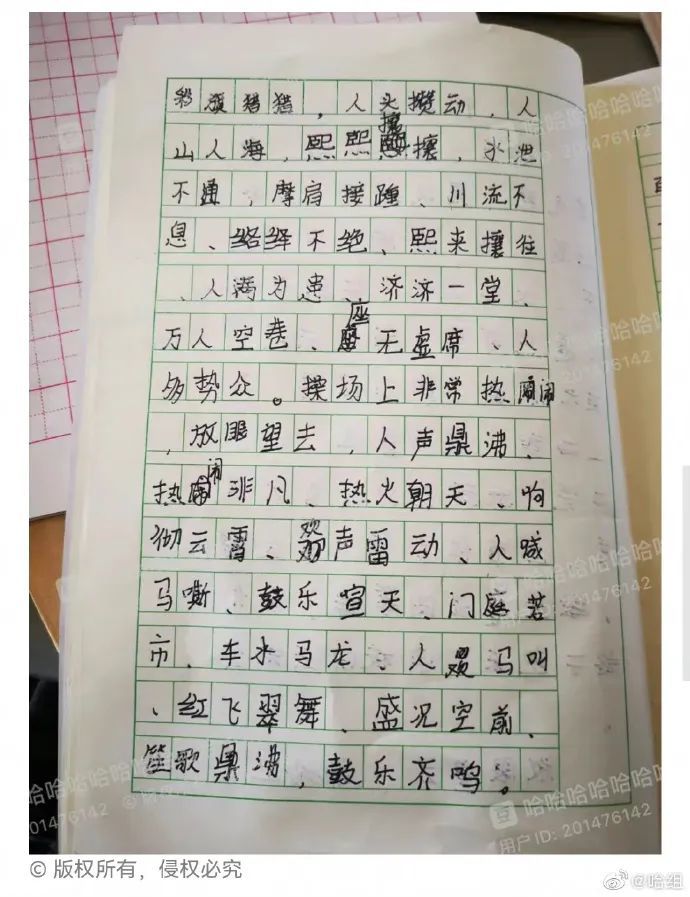 彩旗猎猎，人头攒动、人
山人海、熙熙攘攘，水泄
不通，摩肩接踵、川流不
息、络绎不绝、熙来攘往
、人满为患、济济一堂、
万人空巷、座无虚席、人
多势众。操场上非常热闹
，放眼望去，人声鼎沸、
热闹非凡、热火朝天、响
彻云霄、欢声雷动、人喊
马嘶、鼓乐喧天、门庭若
市、车水马龙、人欢马叫
、红飞翠舞、盛况空前、
笙歌鼎沸，鼓乐齐鸣。
哈哈哈哈哈哈
用户ID: 201476142
© 版权所有，侵权必究
@哈组